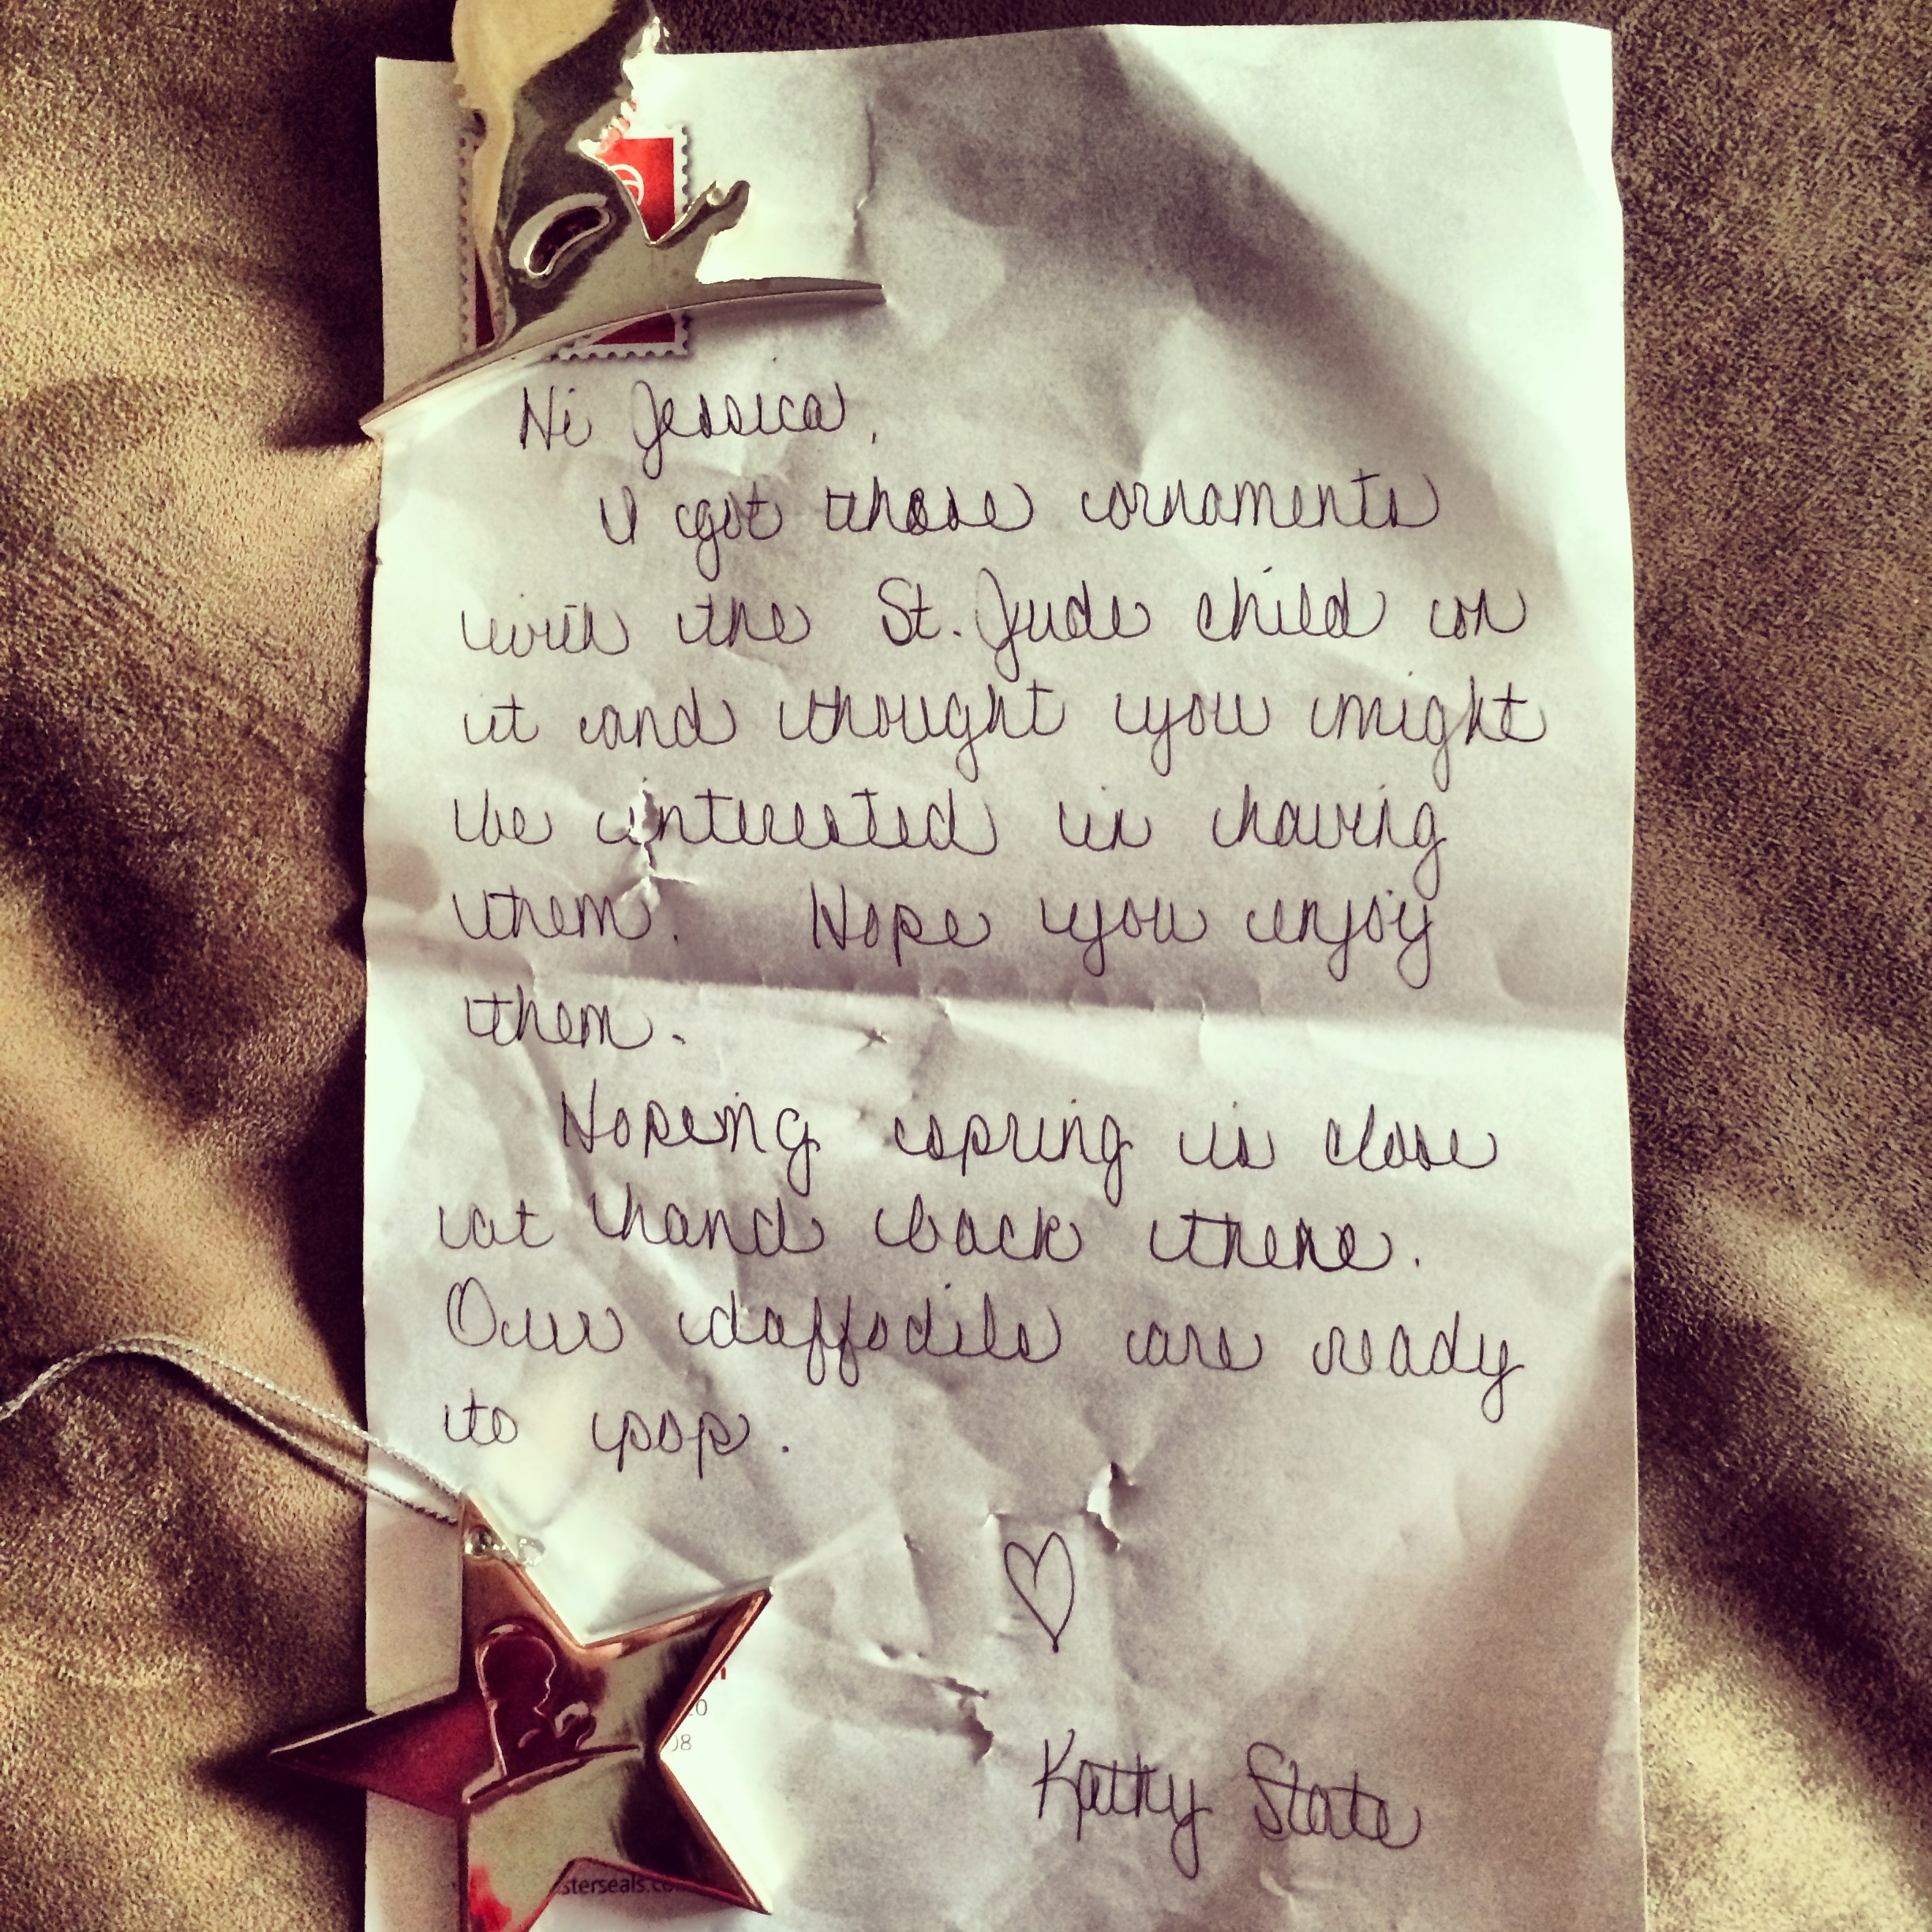 Hi Jessica,
I got these ornaments
with the St. Jude child on
it and thought you might
be interested in having
them. Hope you enjoy
them.
Hopeing spring is close
at hand back there.
Our daffodils are ready
to pop.
Kathy State
20
08
sterseals.co